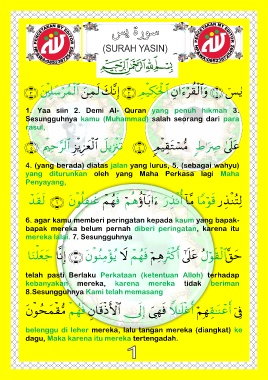 سورة يس
(SURAH YASIN)
بِسْمِ اللَّهِ الرَّحْمَٰنِ الرَّحِيمِ
يسٓ ۝ وَالْقُرْءَانِ الْحَكِيْمِ ۝ إِنَّكَ لَمِنَ الْمُرْسَلِيْنَ ۝
1. Yaa siin 2. Demi Al- Quran yang penuh hikmah 3.
Sesungguhnya kamu (Muhammad) salah seorang dari para
rasul,
عَلَىٰ صِرَٰطٍ مُّسْتَقِيْمٍ ۝ تَنْزِيْلَ الْعَزِيْزِ الرَّحِيْمِ ۝
4. (yang berada) diatas jalan yang lurus, 5. (sebagai wahyu)
yang diturunkan oleh yang Maha Perkasa lagi Maha
Penyayang,
لِتُنْذِرَ قَوْمًا مَّآ أُنْذِرَ ءَابَآؤُهُمْ فَهُمْ غَٰفِلُوْنَ ۝ لَقَدْ
6. agar kamu memberi peringatan kepada kaum yang bapak-
bapak mereka belum pernah diberi peringatan, karena itu
mereka lalai. 7. Sesungguhnya
حَقَّ الْقَوْلُ عَلَىٰٓ أَكْثَرِهِمْ فَهُمْ لَا يُؤْمِنُوْنَ ۝ إِنَّا جَعَلْنَا
telah pasti Berlaku Perkataan (ketentuan Allah) terhadap
kebanyakan mereka, karena mereka tidak beriman
8.Sesungguhnya Kami telah memasang
فِىٓ أَعْنَٰقِهِمْ أَغْلَٰلًا فَهِىَ إِلَى الْأَذْقَانِ فَهُمْ مُّقْمَحُوْنَ
belenggu di leher mereka, lalu tangan mereka (diangkat) ke
dagu, Maka karena itu mereka tertengadah.
1